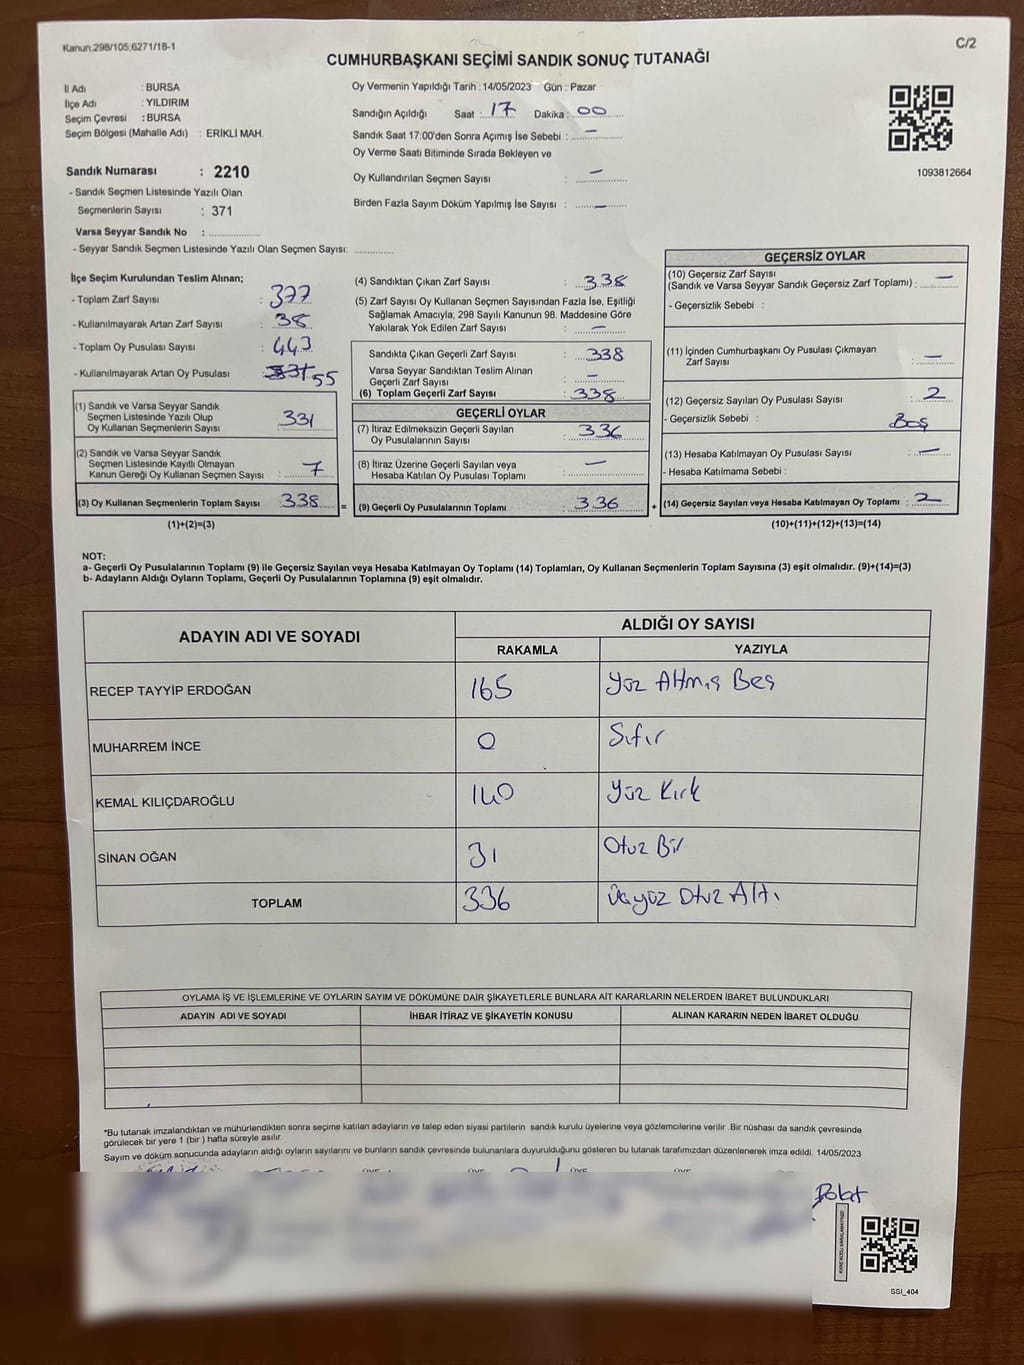 Kanun,298/105,6271/18-1
C/2
CUMHURBAŞKANI SEÇİMİ SANDIK SONUÇ TUTANAĞI
İl Adı : BURSA
İlçe Adı : YILDIRIM
Seçim Çevresi : BURSA
Seçim Bölgesi (Mahalle Adı) : ERİKLİ MAH.
Oy Vermenin Yapıldığı Tarih : 14/05/2023 Gün : Pazar
Sandığın Açıldığı Saat : 17 Dakika : 00
Sandık Saat 17:00'den Sonra Açımış İse Sebebi : –
Oy Verme Saati Bitiminde Sırada Bekleyen ve
Oy Kullandırılan Seçmen Sayısı : –
Birden Fazla Sayım Döküm Yapılmış İse Sayısı : –
1093812664
Sandık Numarası : 2210
- Sandık Seçmen Listesinde Yazılı Olan
Seçmenlerin Sayısı : 371
Varsa Seyyar Sandık No :
- Seyyar Sandık Seçmen Listesinde Yazılı Olan Seçmen Sayısı:
İlçe Seçim Kurulundan Teslim Alınan;
- Toplam Zarf Sayısı : 377
- Kullanılmayarak Artan Zarf Sayısı : 38
- Toplam Oy Pusulası Sayısı : 443
- Kullanılmayarak Artan Oy Pusulası : 55
(1) Sandık ve Varsa Seyyar Sandık
Seçmen Listesinde Yazılı Olup
Oy Kullanan Seçmenlerin Sayısı : 331
(2) Sandık ve Varsa Seyyar Sandık
Seçmen Listesinde Kayıtlı Olmayan
Kanun Gereği Oy Kullanan Seçmen Sayısı : 7
(3) Oy Kullanan Seçmenlerin Toplam Sayısı : 338 =
(1)+(2)=(3)
(4) Sandıktan Çıkan Zarf Sayısı : 338
(5) Zarf Sayısı Oy Kullanan Seçmen Sayısından Fazla İse, Eşitliği
Sağlamak Amacıyla; 298 Sayılı Kanunun 98. Maddesine Göre
Yakılarak Yok Edilen Zarf Sayısı : –
Sandıkta Çıkan Geçerli Zarf Sayısı : 338
Varsa Seyyar Sandıktan Teslim Alınan
Geçerli Zarf Sayısı : –
(6) Toplam Geçerli Zarf Sayısı : 338
GEÇERLİ OYLAR
(7) İtiraz Edilmeksizin Geçerli Sayılan
Oy Pusulalarının Sayısı : 336
(8) İtiraz Üzerine Geçerli Sayılan veya
Hesaba Katılan Oy Pusulası Toplamı : –
(9) Geçerli Oy Pusulalarının Toplamı : 336 +
GEÇERSİZ OYLAR
(10) Geçersiz Zarf Sayısı
(Sandık ve Varsa Seyyar Sandık Geçersiz Zarf Toplamı) : –
- Geçersizlik Sebebi :
(11) İçinden Cumhurbaşkanı Oy Pusulası Çıkmayan
Zarf Sayısı : –
(12) Geçersiz Sayılan Oy Pusulası Sayısı : 2
- Geçersizlik Sebebi : Boş
(13) Hesaba Katılmayan Oy Pusulası Sayısı : –
- Hesaba Katılmama Sebebi :
(14) Geçersiz Sayılan veya Hesaba Katılmayan Oy Toplamı : 2
(10)+(11)+(12)+(13)=(14)
NOT:
a- Geçerli Oy Pusulalarının Toplamı (9) ile Geçersiz Sayılan veya Hesaba Katılmayan Oy Toplamı (14) Toplamları, Oy Kullanan Seçmenlerin Toplam Sayısına (3) eşit olmalıdır. (9)+(14)=(3)
b- Adayların Aldığı Oyların Toplamı, Geçerli Oy Pusulalarının Toplamına (9) eşit olmalıdır.
ADAYIN ADI VE SOYADI ALDIĞI OY SAYISI
RAKAMLA YAZIYLA
RECEP TAYYİP ERDOĞAN 165 Yüz Altmış Beş
MUHARREM İNCE 0 Sıfır
KEMAL KILIÇDAROĞLU 140 Yüz Kırk
SİNAN OĞAN 31 Otuz Bir
TOPLAM 336 Üçyüz Otuz Altı
OYLAMA İŞ VE İŞLEMLERİNE VE OYLARIN SAYIM VE DÖKÜMÜNE DAİR ŞİKAYETLERLE BUNLARA AİT KARARLARIN NELERDEN İBARET BULUNDUKLARI
ADAYIN ADI VE SOYADI İHBAR İTİRAZ VE ŞİKAYETİN KONUSU ALINAN KARARIN NEDEN İBARET OLDUĞU
*Bu tutanak imzalandıktan ve mühürlendikten sonra seçime katılan adayların ve talep eden siyasi partilerin sandık kurulu üyelerine veya gözlemcilerine verilir .Bir nüshası da sandık çevresinde
görülecek bir yere 1 (bir ) hafta süreyle asılır.
Sayım ve döküm sonucunda adayların aldığı oyların sayılarını ve bunların sandık çevresinde bulunanlara duyurulduğunu gösteren bu tutanak tarafımızdan düzenlenerek imza edildi. 14/05/2023
Polat
SSI_404